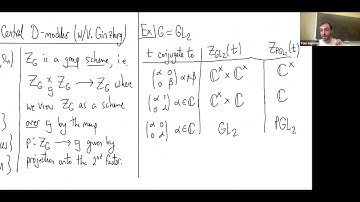 Central D-modules (w/V. Ginzburg)
Z_G is a group scheme, i.e.
Z_G ×_g Z_G → Z_G where
we view Z_G as a scheme
over g by the map
p: Z_G → g given by
projection onto the 2nd factor.
Ex) G = GL_2
t conjugate to Z_{GL_2}(t) Z_{PGL_2}(t)
(α 0; 0 β) α≠β ℂ^× × ℂ^× ℂ^×
(α 1; 0 α) α∈ℂ ℂ^× × ℂ ℂ
(α 0; 0 α) α∈ℂ GL_2 PGL_2